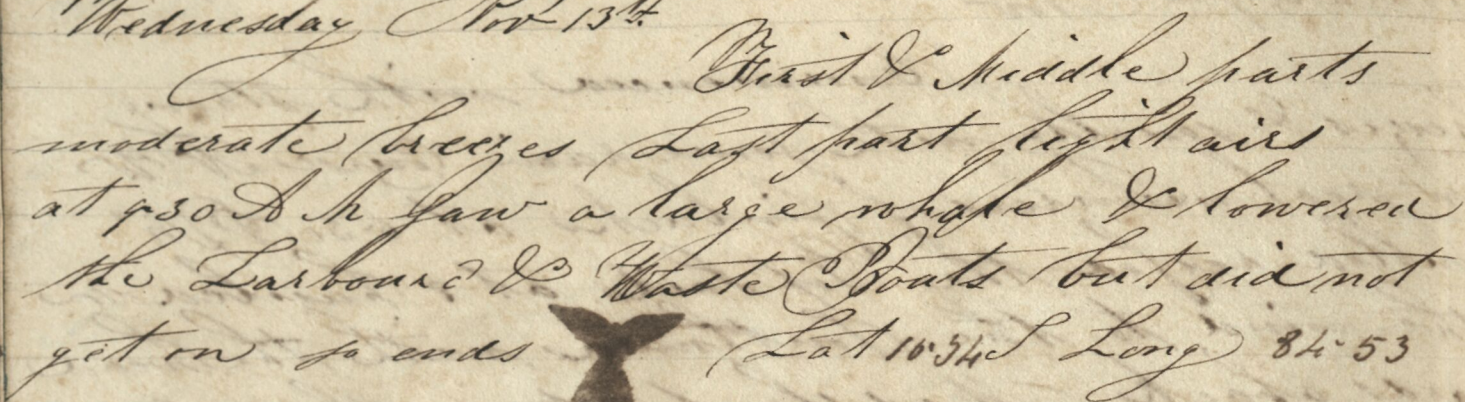 Wednesday Nov 13th
First & Middle parts
moderate breezes Last part light airs
at 9 30 A M Saw a large whale & lowered
the Larbourd & Waste Boats but did not
get on so ends Lat S Long 84-53